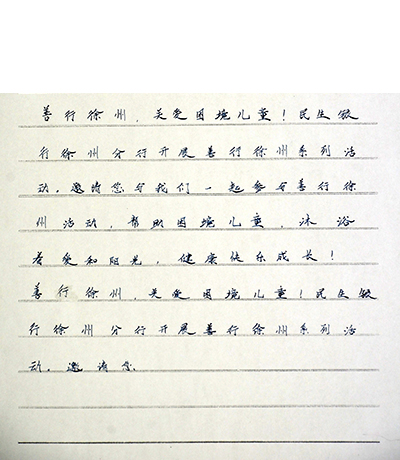 善行徐州，关爱困境儿童！民生银
行徐州分行开展善行徐州系列活
动，邀请您与我们一起参与善行徐
州活动，帮助困境儿童，沐浴
着爱和阳光，健康快乐成长！
善行徐州，关爱困境儿童！民生银
行徐州分行开展善行徐州系列活
动，邀请您